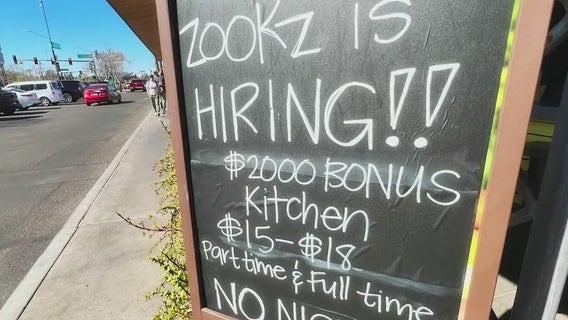 ZOOKZ IS
HIRING!!
$2000 BONUS
Kitchen
$15-$18
Part time & Full time
NO